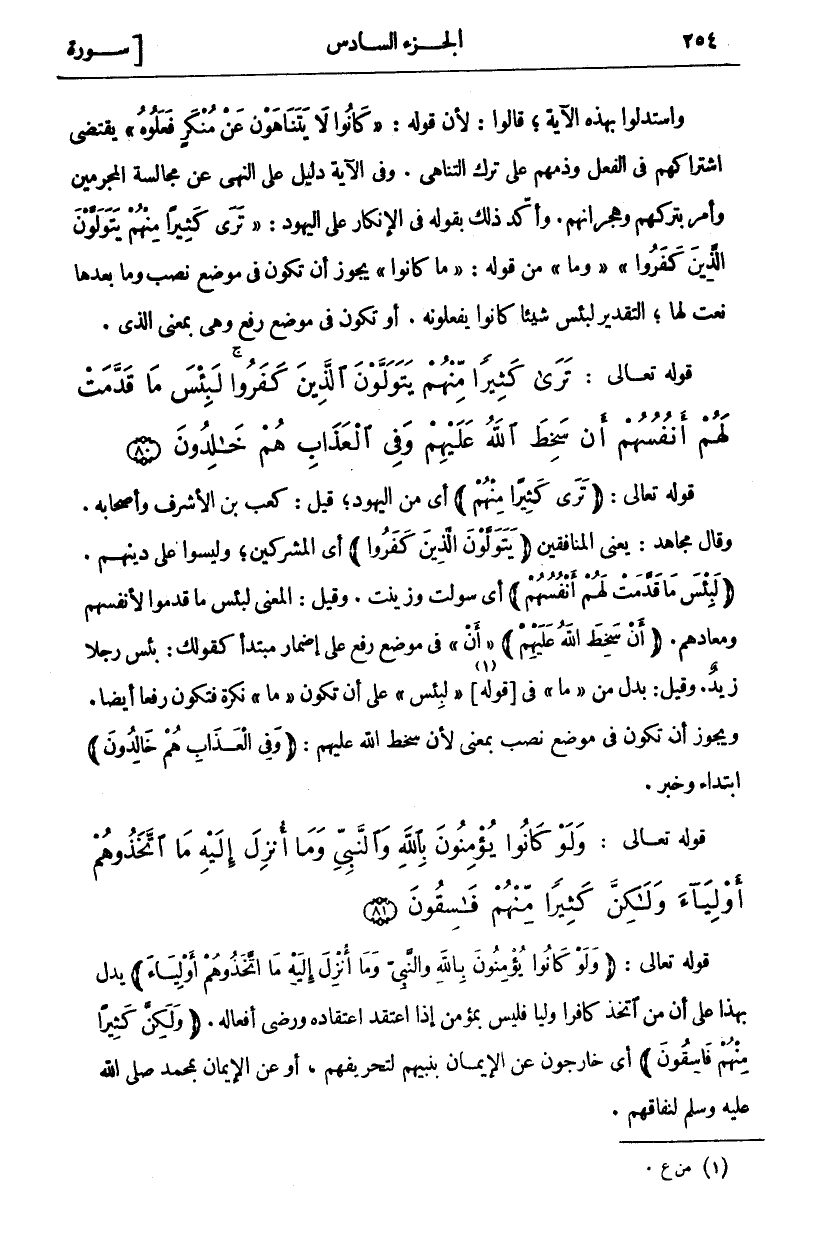 ٢٥٤ الجـزء السادس [ ســورة
واستدلوا بهذه الآية ؛ قالوا : لأن قوله : « كَانُوا لَا يَتَنَاهَوْن عَنْ مُنْكَرٍ فَعَلُوهُ » يقتضى
اشتراكهم فى الفعل وذمهم على ترك التناهى . وفى الآية دليل على النهى عن مجالسة المجرمين
وأمر بتركهم وهجرانهم. وأكّد ذلك بقوله فى الإنكار على اليهود : « تَرَى كَثِيرًا مِنْهُمْ يَتَوَلَّوْنَ
الَّذِينَ كَفَرُوا » « وما » من قوله : « ما كانوا » يجوز أن تكون فى موضع نصب وما بعدها
نعت لها ؛ التقدير لبئس شيئا كانوا يفعلونه . أو تكون فى موضع رفع وهى بمعنى الذى .
قوله تعـالى : تَرَىٰ كَثِيرًا مِّنْهُمْ يَتَوَلَّوْنَ ٱلَّذِينَ كَفَرُوا۟ ۚ لَبِئْسَ مَا قَدَّمَتْ
لَهُمْ أَنفُسُهُمْ أَن سَخِطَ ٱللَّهُ عَلَيْهِمْ وَفِى ٱلْعَذَابِ هُمْ خَـٰلِدُونَ ﴿٨٠﴾
قوله تعالى : ﴿ تَرَى كَثِيرًا مِنْهُمْ ﴾ أى من اليهود؛ قيل : كعب بن الأشرف وأصحابه .
وقال مجاهد : يعنى المنافقين ﴿ يَتَوَلَّوْنَ الَّذِينَ كَفَرُوا ﴾ أى المشركين؛ وليسوا على دينهـم .
﴿ لَبِئْسَ مَا قَدَّمَتْ لَهُمْ أَنْفُسُهُمْ ﴾ أى سولت وزينت . وقيل : المعنى لبئس ما قدموا لأنفسهم
ومعادهم. ﴿ أَنْ سَخِطَ اللهُ عَلَيْهِمْ ﴾ « أَنْ » فى موضع رفع على إضمار مبتدأ كقولك : بئس رجلا
زيدٌ. وقيل: بدل من « ما » فى [قوله](١) « لبئس » على أن تكون « ما » نكرة فتكون رفعا أيضا.
ويجوز أن تكون فى موضع نصب بمعنى لأن سخط الله عليهم : ﴿ وَفِى الْعَـذَابِ هُمْ خَالِدُونَ ﴾
ابتداء وخبر .
قوله تعـالى : وَلَوْ كَانُوا يُؤْمِنُونَ بِٱللَّهِ وَٱلنَّبِىِّ وَمَا أُنزِلَ إِلَيْهِ مَا ٱتَّخَذُوهُمْ
أَوْلِيَآءَ وَلَـٰكِنَّ كَثِيرًا مِّنْهُمْ فَـٰسِقُونَ ﴿٨١﴾
قوله تعالى : ﴿ وَلَوْ كَانُوا يُؤْمِنُونَ بِاللهِ والنَّبِىِّ وَمَا أُنْزِلَ إِلَيْهِ مَا اتَّخَذُوهُمْ أَوْلِيَـاءَ ﴾ يدل
بهذا على أن من ٱتخذ كافرا وليا فليس بمؤمن إذا اعتقد اعتقاده ورضى أفعاله . ﴿ وَلَكِنَّ كَثِيرًا
مِنْهُمْ فَاسِقُونَ ﴾ أى خارجون عن الإيمـان بنبيهم لتحريفهم ، أو عن الإيمان بمحمد صلى الله
عليه وسلم لنفاقهم .
(١) من ع .